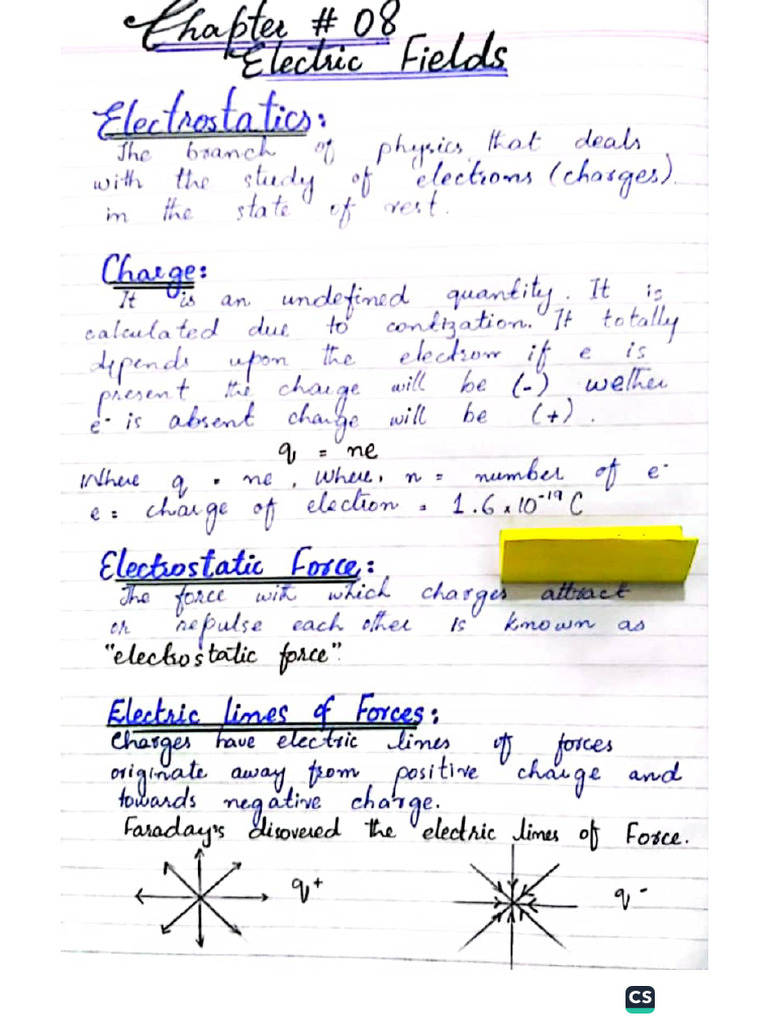 Chapter # 08
Electric Fields
Electrostatics:
The branch of physics that deals
with the study of electrons (charges)
in the state of rest.
Charge:
It is an undefined quantity. It is
calculated due to contization. It totally
depends upon the electron if e is
present the charge will be (-) wether
e⁻ is absent charge will be (+).
q = ne
Where q = ne, where, n = number of e⁻
e = charge of election = 1.6 x 10⁻¹⁹ C
Electrostatic Force:
The force with which charges attract
or repulse each other is known as
"electrostatic force".
Electric lines of Forces:
Charges have electric lines of forces
originate away from positive charge and
towards negative charge.
Faraday's disovered the electric lines of Force.
q⁺ q⁻
CS